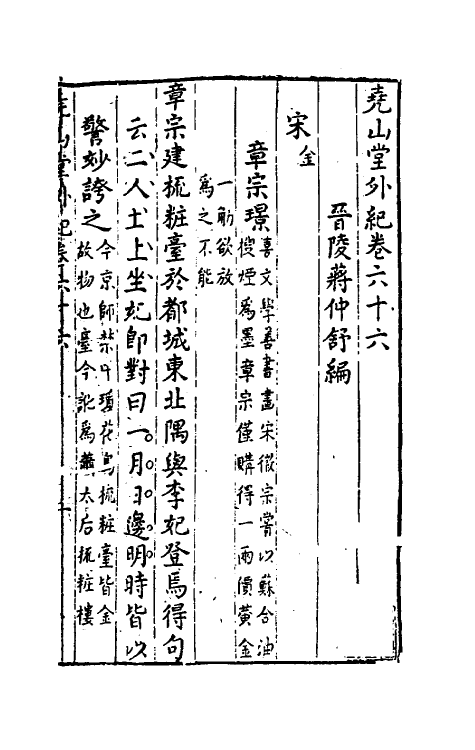 堯山堂外紀卷六十六
晉陵蔣仲舒編
宋金
章宗璟喜文學善書畫宋徽宗嘗以蘇合油
搜煙爲墨章宗僅購得一兩價黃金
一觔欲放
爲之不能
章宗建梳粧臺於都城東北隅與李妃登焉得句
云二人土上坐妃即對曰一月日邊明時皆以
警妙誇之今京師禁中瓊花島梳粧臺皆金
故物也臺今訛爲蕭太后梳粧樓
堯山堂外紀卷六十六